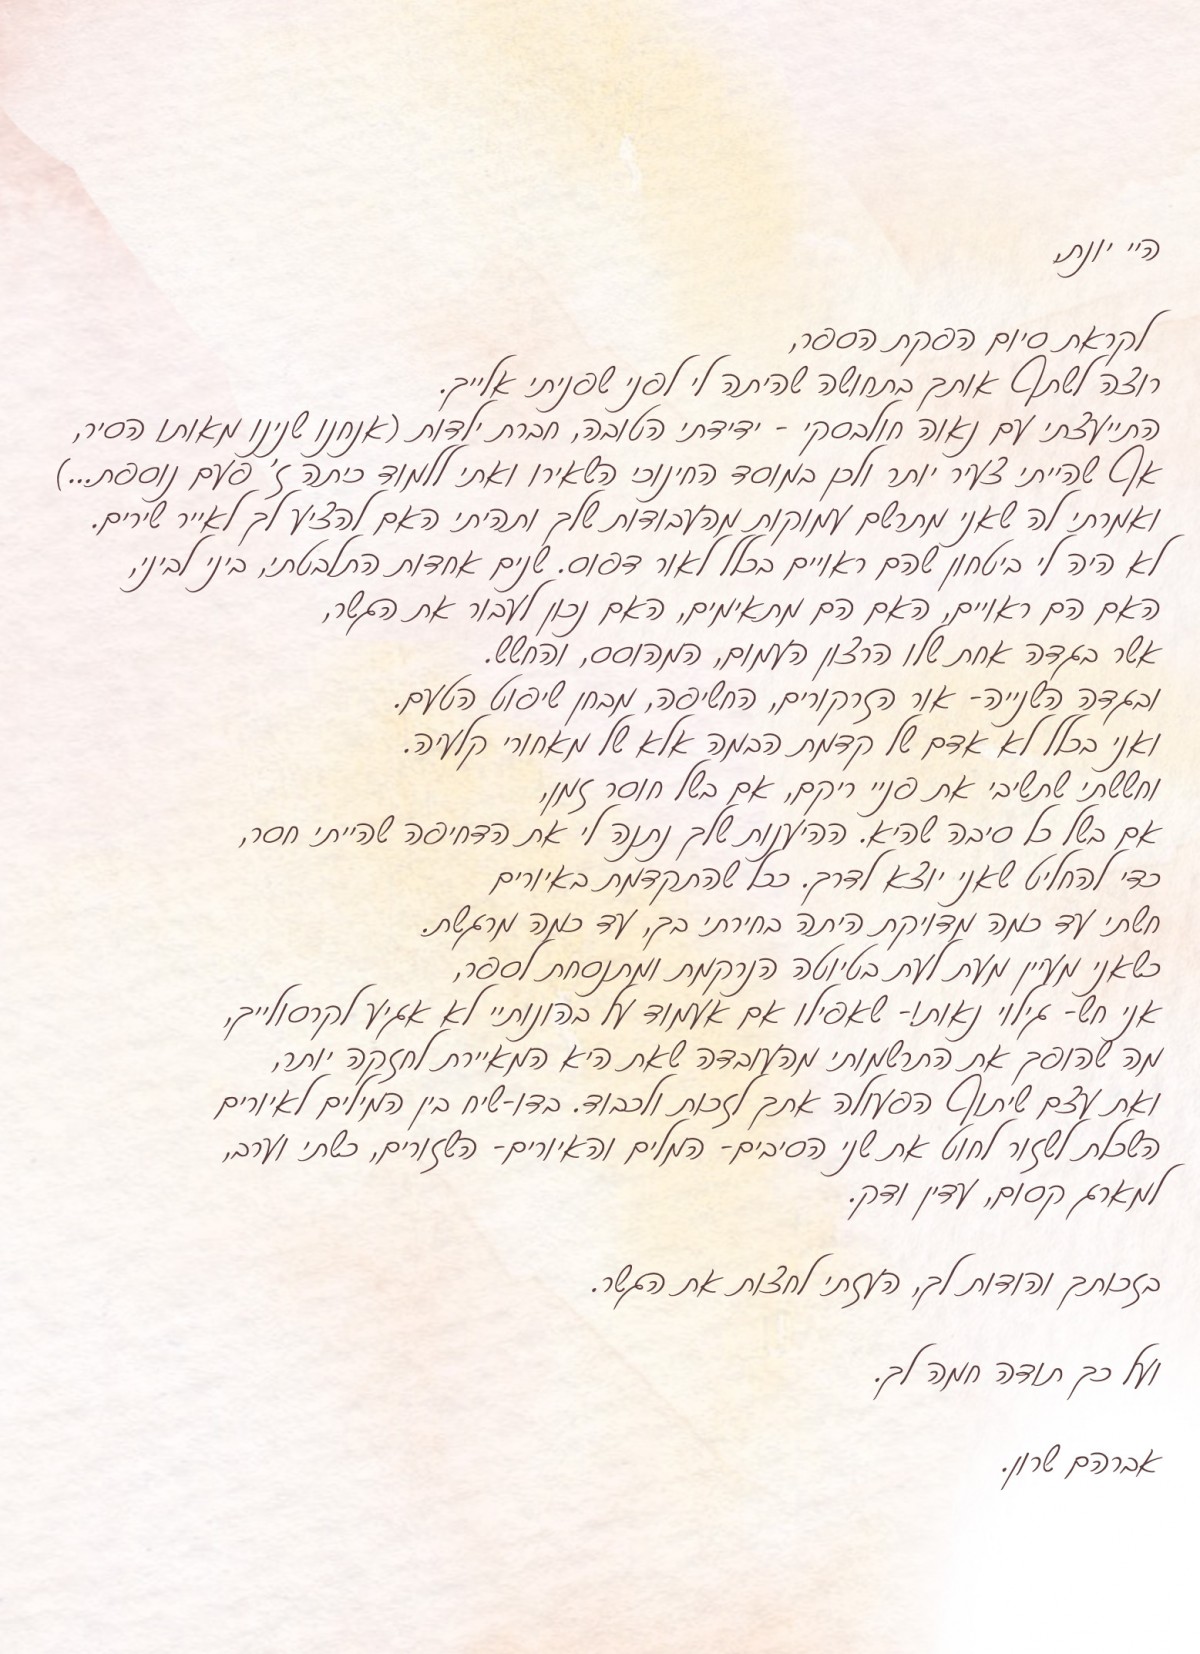 היי יונת,
לקראת סיום הפקת הספר,
רוצה לשתף אותך בתחושה שהיתה לי לפני שפניתי אלייך.
התייעצתי עם נאוה חולבסקי - ידידתי הטובה, חברת ילדות (אנחנו שנינו מאותו הסיר,
אף שהייתי צעיר יותר ולכן במוסד החינוכי השאירו ואתי ללמוד כיתה ז' פעם נוספת...)
ואמרתי לה שאני מתרשם עמוקות מהעבודות שלך ותהיתי האם להציע לך לאייר שירים.
לא היה לי ביטחון שהם ראויים בכלל לאור דפוס. שנים אחדות התלבטתי, ביני לביני,
האם הם ראויים, האם הם מתאימים, האם נכון לעבור את הגשר,
אשר בגדה אחת שלו הרצון העמום, המהוסס, והחשש.
ובגדה השנייה- אור הזרקורים, החשיפה, מבחן שיפוט הטעם.
ואני בכלל לא אדם של קדמת הבמה אלא של מאחורי קלעיה.
וחששתי שתשיבי את פניי ריקם, אם בשל חוסר זמן,
אם בשל כל סיבה שהיא. ההיענות שלך נתנה לי את הדחיפה שהייתי חסר,
כדי להחליט שאני יוצא לדרך. ככל שהתקדמת באיורים
חשתי עד כמה מדויקת היתה בחירתי בך, עד כמה מרגשת.
כשאני מעיין מעת לעת בטיוטה הנרקמת ומתנסחת לספר,
אני חש- גילוי נאות!- שאפילו אם אעמוד על בהונותיי לא אגיע לקרסולייך,
מה שהופך את התרשמותי מהעובדה שאת היא המאיירת לחזקה יותר,
ואת עצם שיתוף הפעולה אתך לזכות ולכבוד. בדו-שיח בין המילים לאיורים
השכלת לשזור לחוט את שני הסיבים- המלים והאיורים- השזורים, כשתי וערב,
למארג קסום, עדין ודק.
בזכותך והודות לך, העזתי לחצות את הגשר.
ועל כך תודה חמה לך.
אברהם שרון.